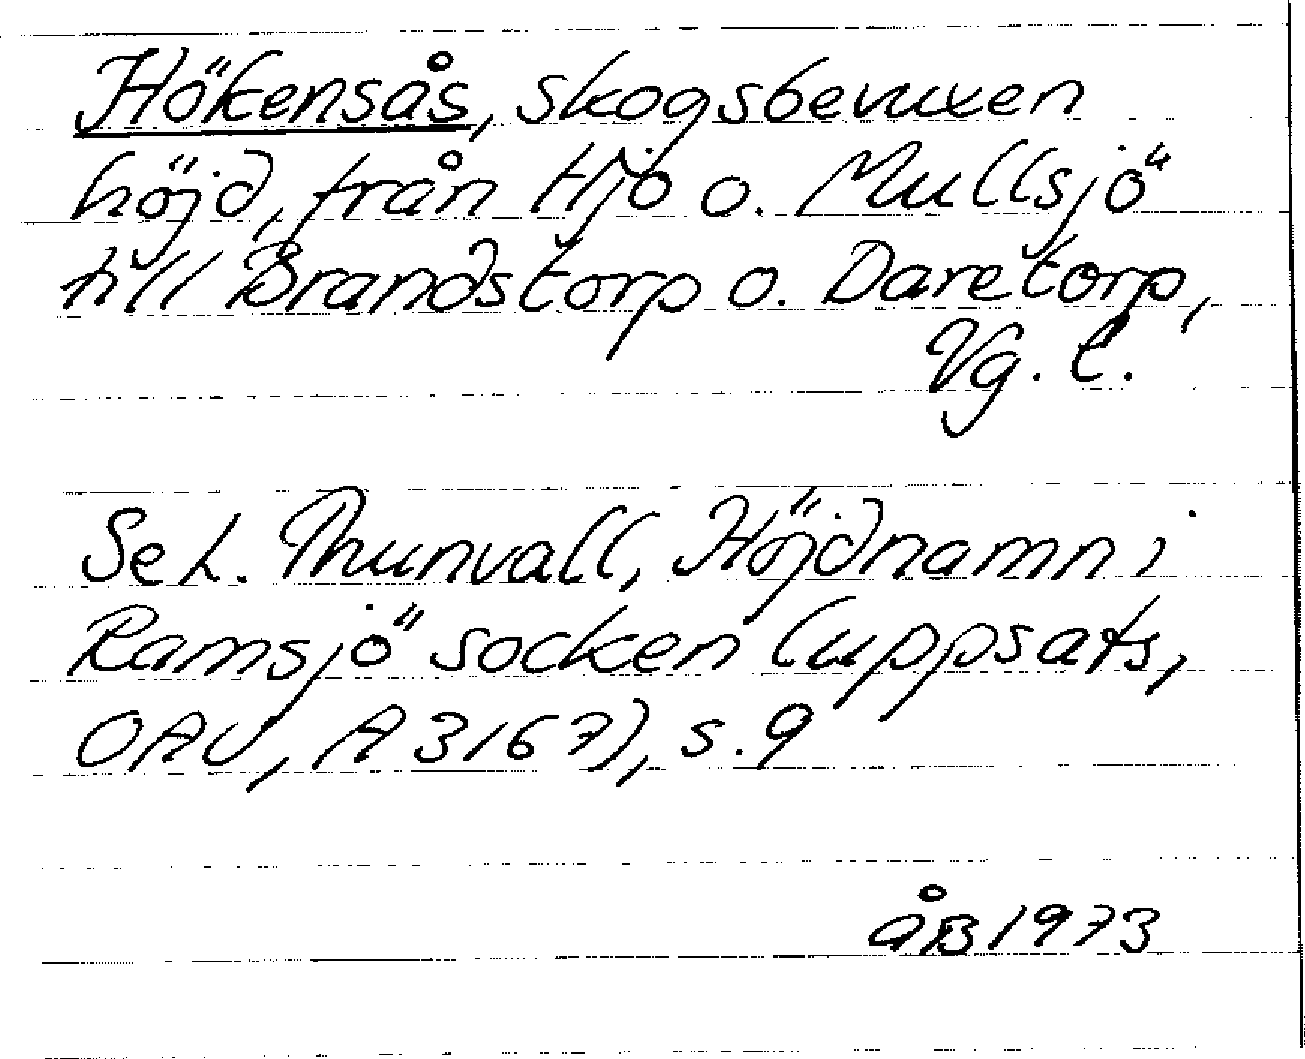 Hökensås, skogsbevuxen
höjd, från Hjo o. Mullsjö
till Brandstorp o. Daretorp,
Vg. l.
Se L. Thunvall, Höjdnamn i
Ramsjö socken (uppsats,
OAU, A 3167), s. 9
ÅB 1973